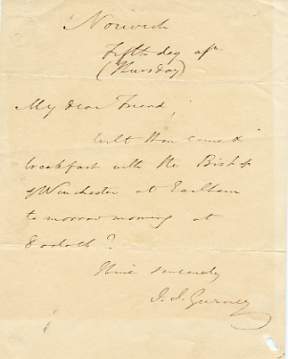 Norwich
Fifth day aft.
(Thursday)
My dear Friend,
Wilt thou come &
breakfast with the Bishop
of Winchester at Earlham
to morrow morning at
8 o'clock?
Thine sincerely
J. J. Gurney